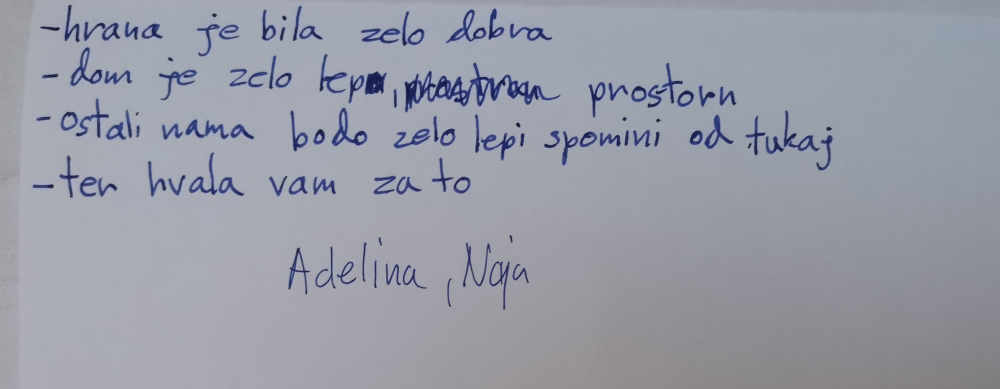 -hrana je bila zelo dobra
- dom je zelo lep, prostorn
-ostali nama bodo zelo lepi spomini od tukaj
-ter hvala vam za to
Adelina, Naja